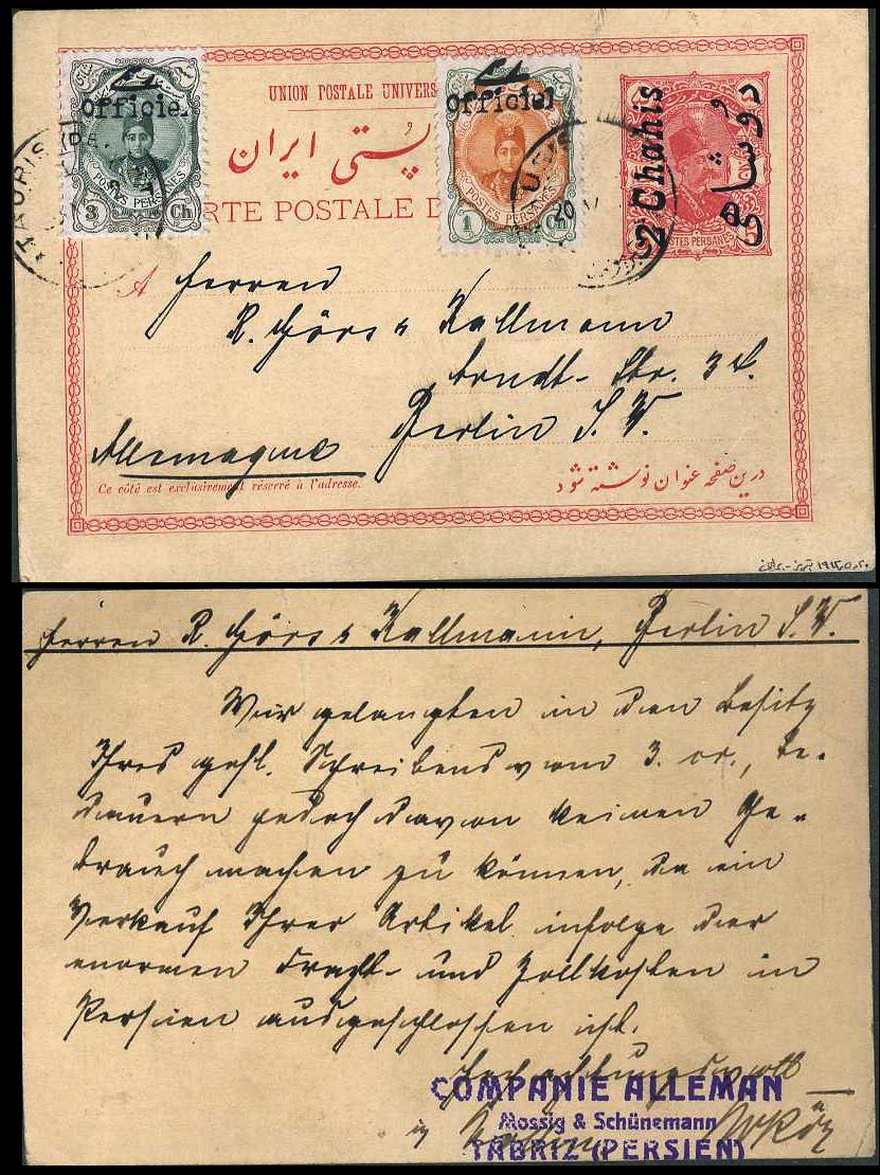 UNION POSTALE UNIVERS
پستی ایران
RTE POSTALE D
Officiel
POSTES PERSANES
3 Ch
Official
POSTES PERSANES
1 Ch
2 Chahis
دو شاهی
POSTES PERSANES
TAURIS
A Herren
R. Görs & Kallmann
Arndt-Str. 34.
Berlin S.W.
Allemagne
Ce côté est exclusivement réservé à l'adresse.
درین صفحه عنوان نوشته شود
Herren R. Görs & Kallmann, Berlin S.W.
Wir gelangten in den Besitz
Ihres gefl. Schreibens vom 3. cr., be-
dauern jedoch davon keinen Ge-
brauch machen zu können, da ein
Verkauf Ihrer Artikel infolge der
enormen Fracht- und Zollkosten in
Persien ausgeschlossen ist.
Hochachtungsvoll
COMPANIE ALLEMAN
Mossig & Schünemann
TABRIZ (PERSIEN)